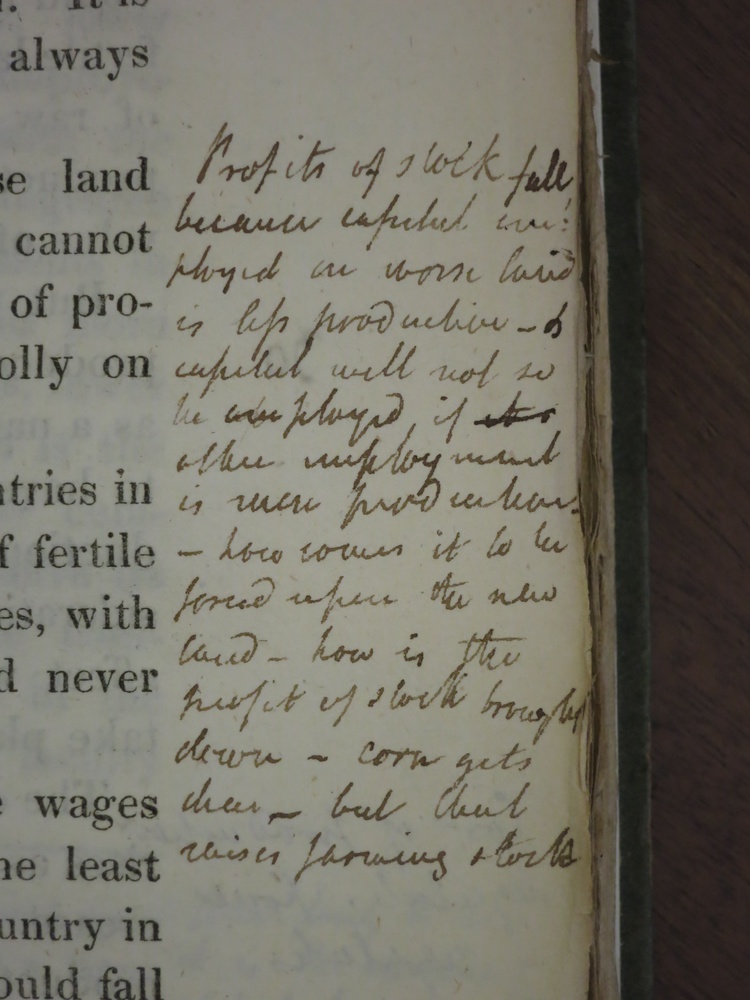 . It is
always
se land
cannot
of pro-
olly on
ntries in
f fertile
es, with
d never
e wages
he least
untry in
ould fall
Profits of stock fall
because capital em:
ployed on worse land
is less production - &
capital will not so
be employed, if
other employment
is more production.
- how comes it to be
forced upon the new
land - how is the
profit of stock brought
down - corn gets
dear - but that
raises farming stock